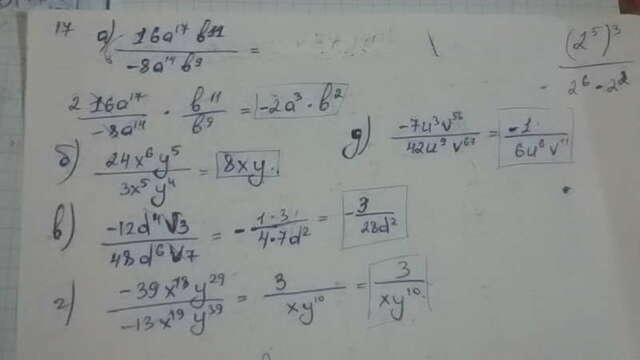 17 а) 16a¹⁷ b¹¹ / -8a¹⁴ b⁹ =
(2⁵)³ / 2⁶ - 2²
2 16a¹⁷ / -8a¹⁴ · b¹¹ / b⁹ = -2a³ · b²
б) 24x⁶ y⁵ / 3x⁵ y⁴ = 8xy.
д) -7u³ v⁵⁶ / 42u⁹ v⁶⁷ = -1 / 6u⁶ v¹¹
в) -12d⁴ √3 / 48d⁶ √7 = - 1·3 / 4·7d² = - 3 / 28d²
г) -39x¹⁸ y²⁹ / -13x¹⁹ y³⁹ = 3 / xy¹⁰ = 3 / xy¹⁰.